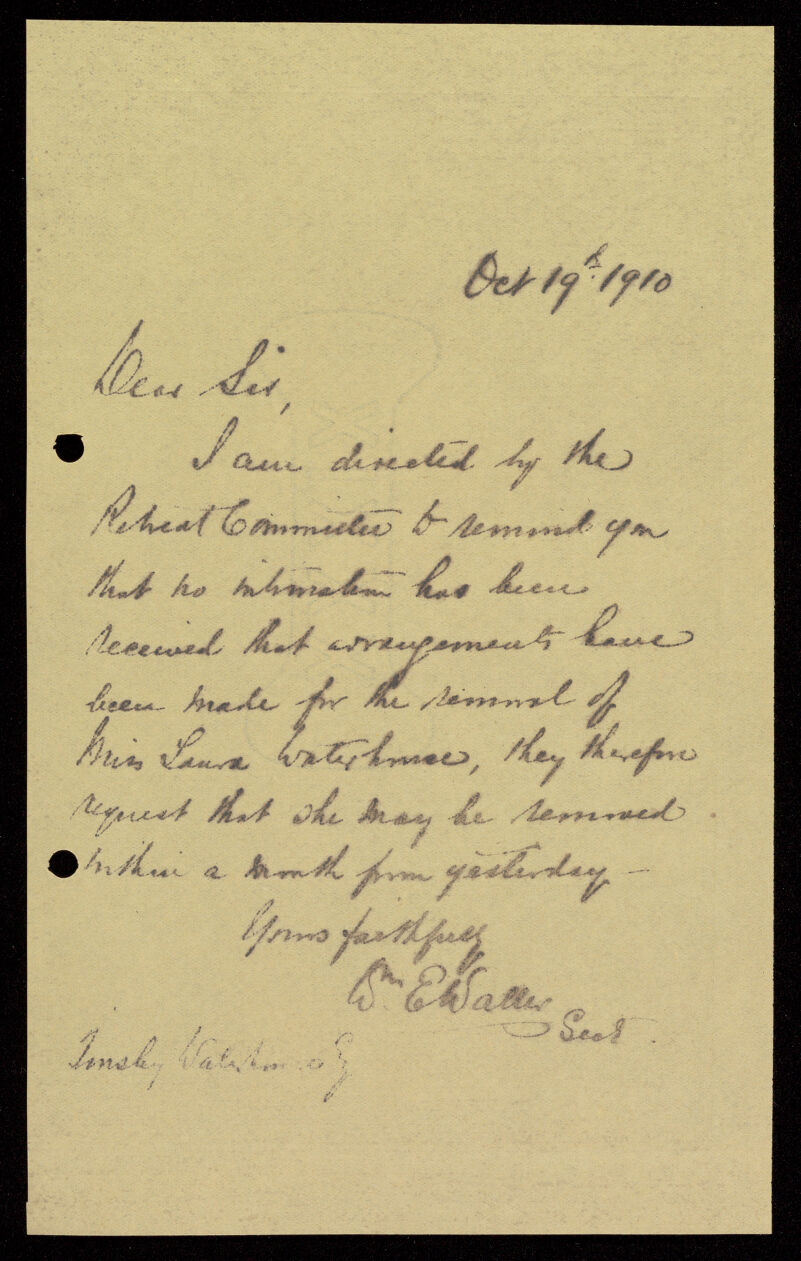 Oct 19th. 1910
Dear Sir,
I am directed by the
Retreat Committee to remind you
that no intimation has been
received that arrangements have
been made for the removal of
Miss Laura Waterhouse, they therefore
request that she may be removed
within a month from yesterday –
Yours faithfully
Wm. E Waller
Sect.
Waterhouse Esq